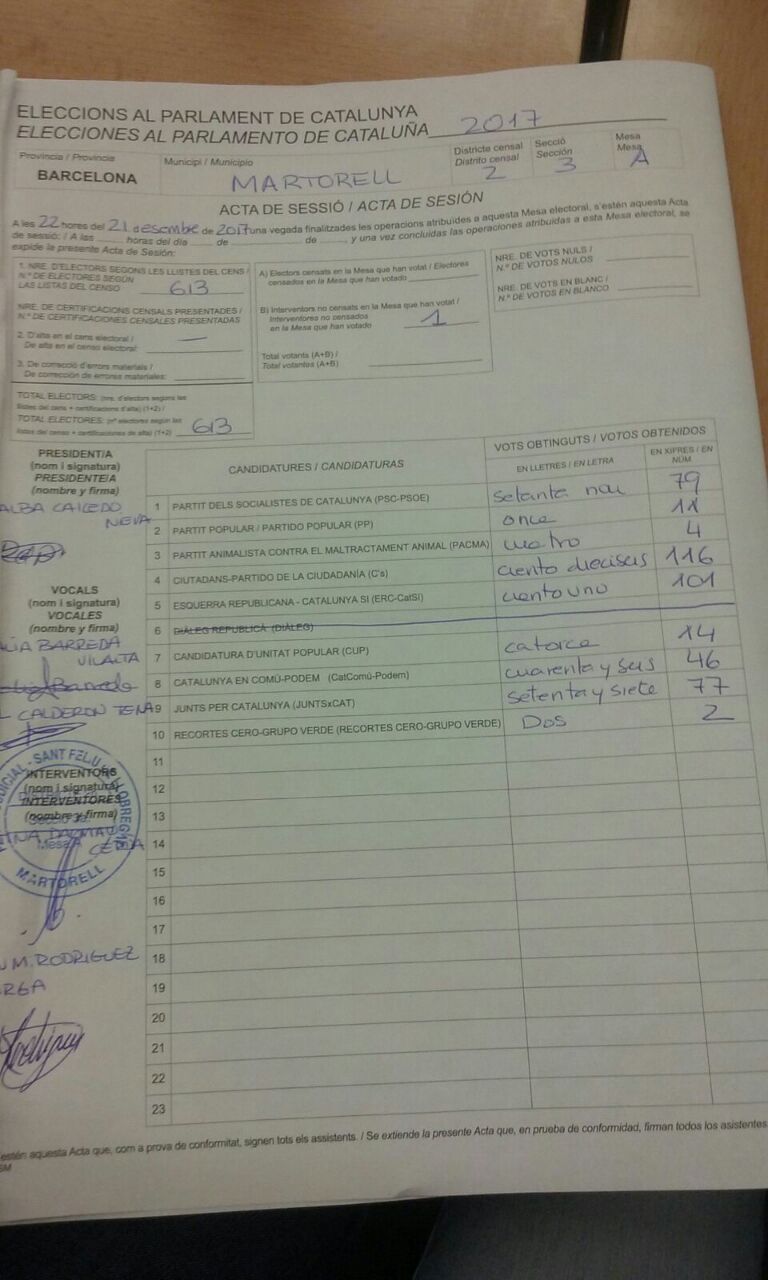 ELECCIONS AL PARLAMENT DE CATALUNYA
ELECCIONES AL PARLAMENTO DE CATALUÑA 2017
Provincia / Provincia
BARCELONA
Municipi / Municipio
MARTORELL
Districte censal
Distrito censal
2
Secció
Sección
3
Mesa
Mesa
A
ACTA DE SESSIÓ / ACTA DE SESIÓN
A les 22 hores del 21 desembre de 2017 una vegada finalitzades les operacions atribuïdes a aquesta Mesa electoral, s'estén aquesta Acta
de sessió: / A las horas del día de de , y una vez concluidas las operaciones atribuidas a esta Mesa electoral, se
expide la presente Acta de Sesión:
1. NRE. D'ELECTORS SEGONS LES LLISTES DEL CENS /
N.º DE ELECTORES SEGÚN
LAS LISTAS DEL CENSO 613
NRE. DE CERTIFICACIONS CENSALS PRESENTADES /
N.º DE CERTIFICACIONES CENSALES PRESENTADAS
2. D'alta en el cens electoral /
De alta en el censo electoral: —
3. De correcció d'errors materials /
De corrección de errores materiales:
TOTAL ELECTORS: (nre. d'electors segons les
llistes del cens + certificacions d'alta) (1+2) /
TOTAL ELECTORES: (nº electores según las
listas del censo + certificaciones de alta) (1+2) 613
A) Electors censats en la Mesa que han votat / Electores
censados en la Mesa que han votado
B) Interventors no censats en la Mesa que han votat /
Interventores no censados
en la Mesa que han votado 1
Total votants (A+B) /
Total votantes (A+B)
NRE. DE VOTS NULS /
N.º DE VOTOS NULOS
NRE. DE VOTS EN BLANC /
N.º DE VOTOS EN BLANCO
PRESIDENT/A
(nom i signatura)
PRESIDENTE/A
(nombre y firma)
ALBA CAICEDO
NEVA
VOCALS
(nom i signatura)
VOCALES
(nombre y firma)
BARREDA
VILALTA
CALDERON TENA
INTERVENTORS
(nom i signatura)
INTERVENTORES
(nombre y firma)
SANT FELIU
MARTORELL
DALMAU
M. RODRIGUEZ
CANDIDATURES / CANDIDATURAS
VOTS OBTINGUTS / VOTOS OBTENIDOS
EN LLETRES / EN LETRA
EN XIFRES / EN
NÚM.
1 PARTIT DELS SOCIALISTES DE CATALUNYA (PSC-PSOE) setanta nou 79
2 PARTIT POPULAR / PARTIDO POPULAR (PP) once 11
3 PARTIT ANIMALISTA CONTRA EL MALTRACTAMENT ANIMAL (PACMA) cuatro 4
4 CIUTADANS-PARTIDO DE LA CIUDADANÍA (C's) ciento dieciseis 116
5 ESQUERRA REPUBLICANA - CATALUNYA SI (ERC-CatSI) ciento uno 101
6 DIÀLEG REPUBLICÀ (DIÀLEG)
7 CANDIDATURA D'UNITAT POPULAR (CUP) catorce 14
8 CATALUNYA EN COMÚ-PODEM (CatComú-Podem) cuarenta y seis 46
9 JUNTS PER CATALUNYA (JUNTSxCAT) setenta y siete 77
10 RECORTES CERO-GRUPO VERDE (RECORTES CERO-GRUPO VERDE) Dos 2
11
12
13
14
15
16
17
18
19
20
21
22
23
estén aquesta Acta que, com a prova de conformitat, signen tots els assistents. / Se extiende la presente Acta que, en prueba de conformidad, firman todos los asistentes